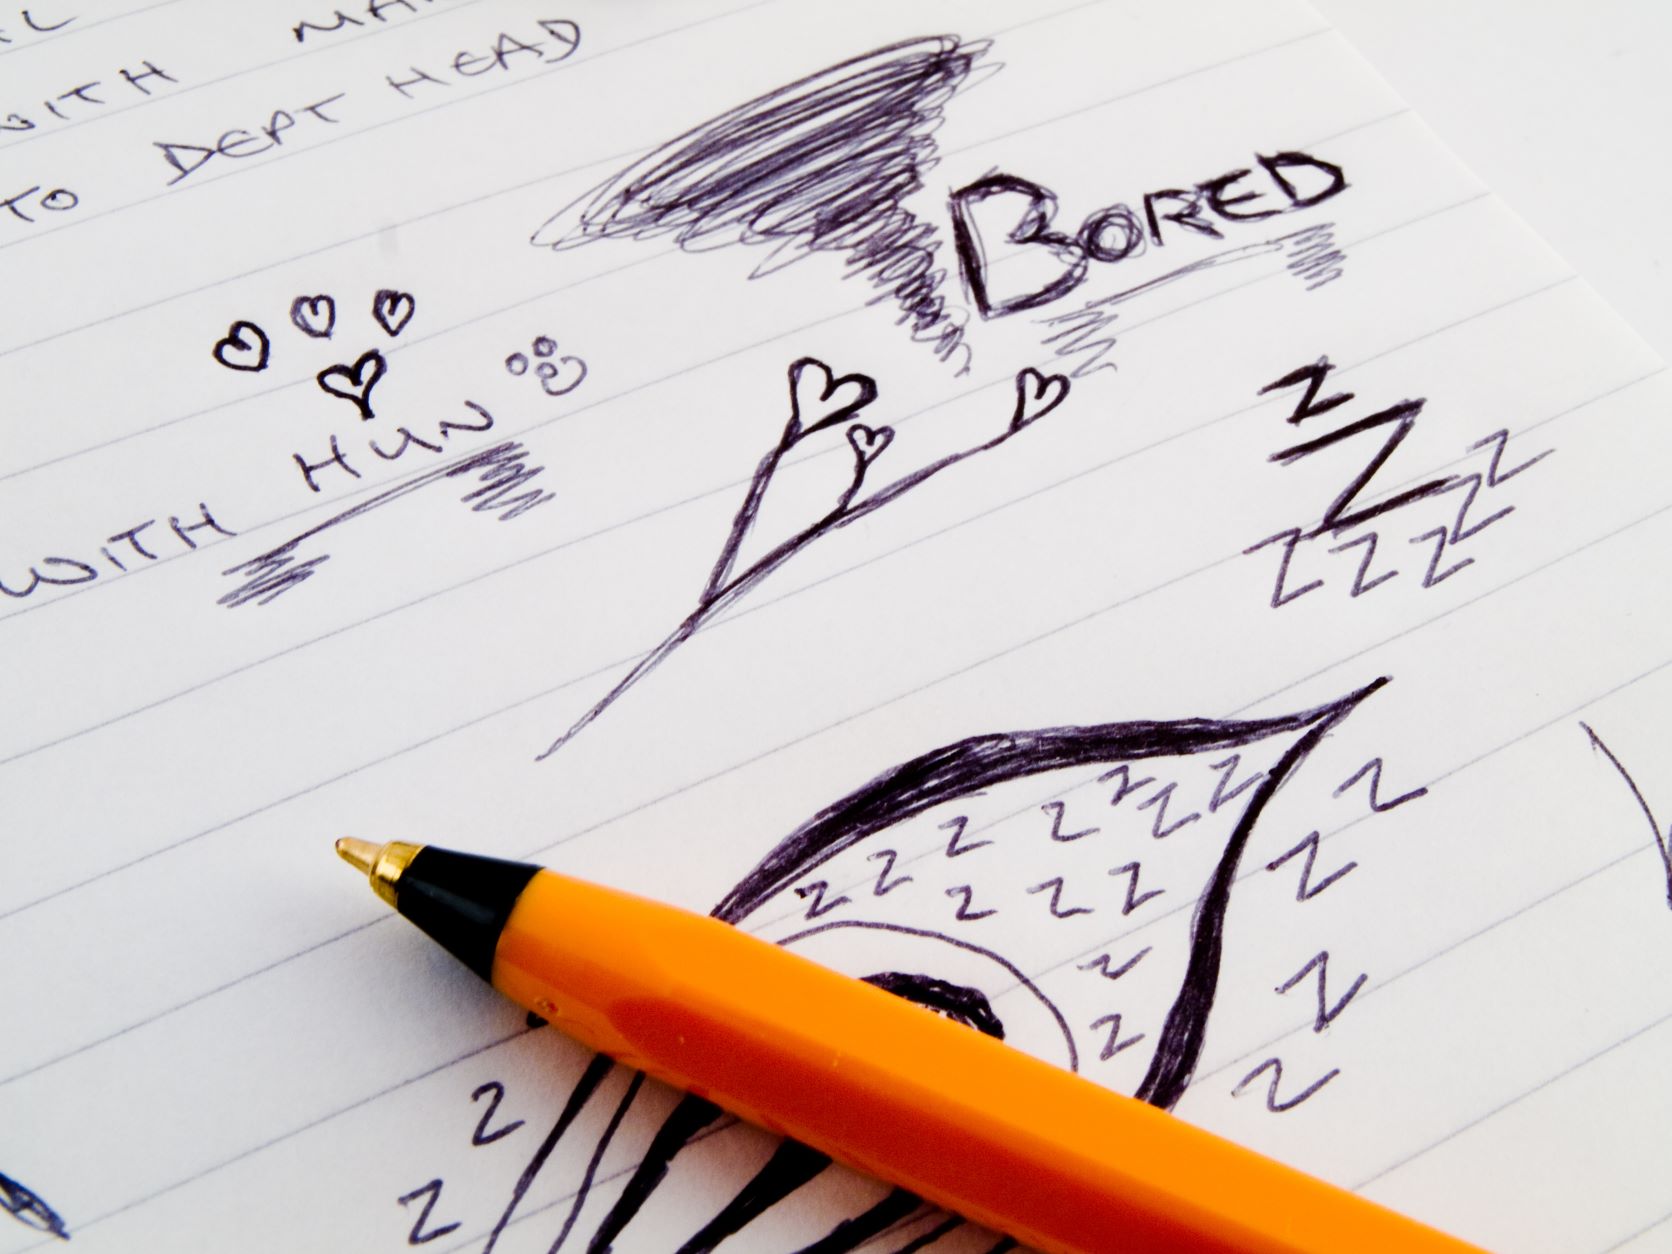 WITH
TO DEPT HEAD
BORED
WITH HUN
Z
Z Z
Z Z Z Z
Z Z Z Z Z Z Z
Z Z Z Z
Z
Z Z
Z Z
Z
Z